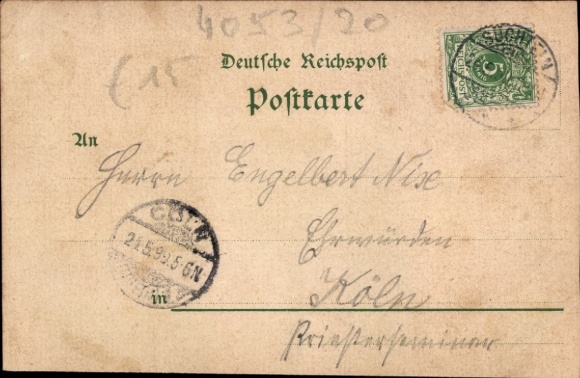 4053/20
€15
Deutsche Reichspost
Postkarte
5
SÜCHTELN
An
Herrn Engelbert Nix
CÖLN
Ehrwürden
5-6N
in Köln
Priesterseminar